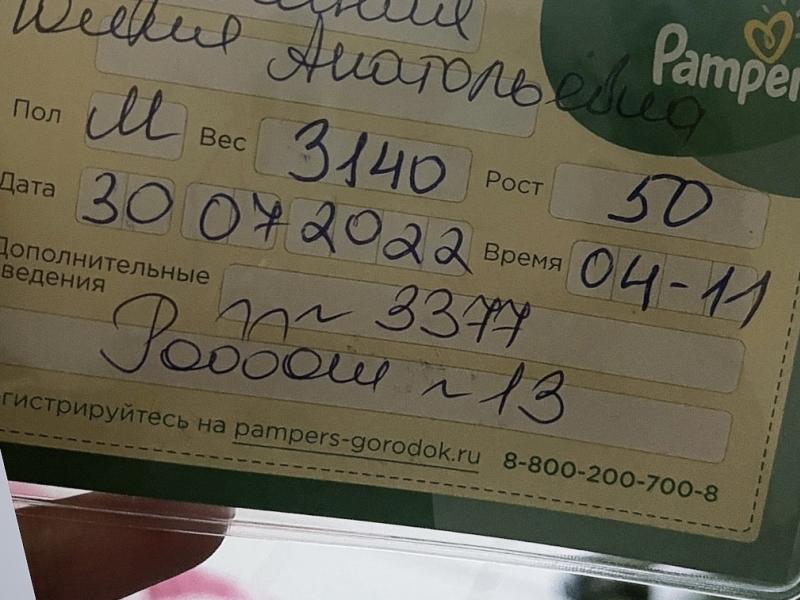 Pampers
Анатольевна
Пол М Вес 3140 Рост 50
Дата 30 07 2022 Время 04-11
Дополнительные
ведения 3377
13
гистрируйтесь на pampers-gorodok.ru 8-800-200-700-8